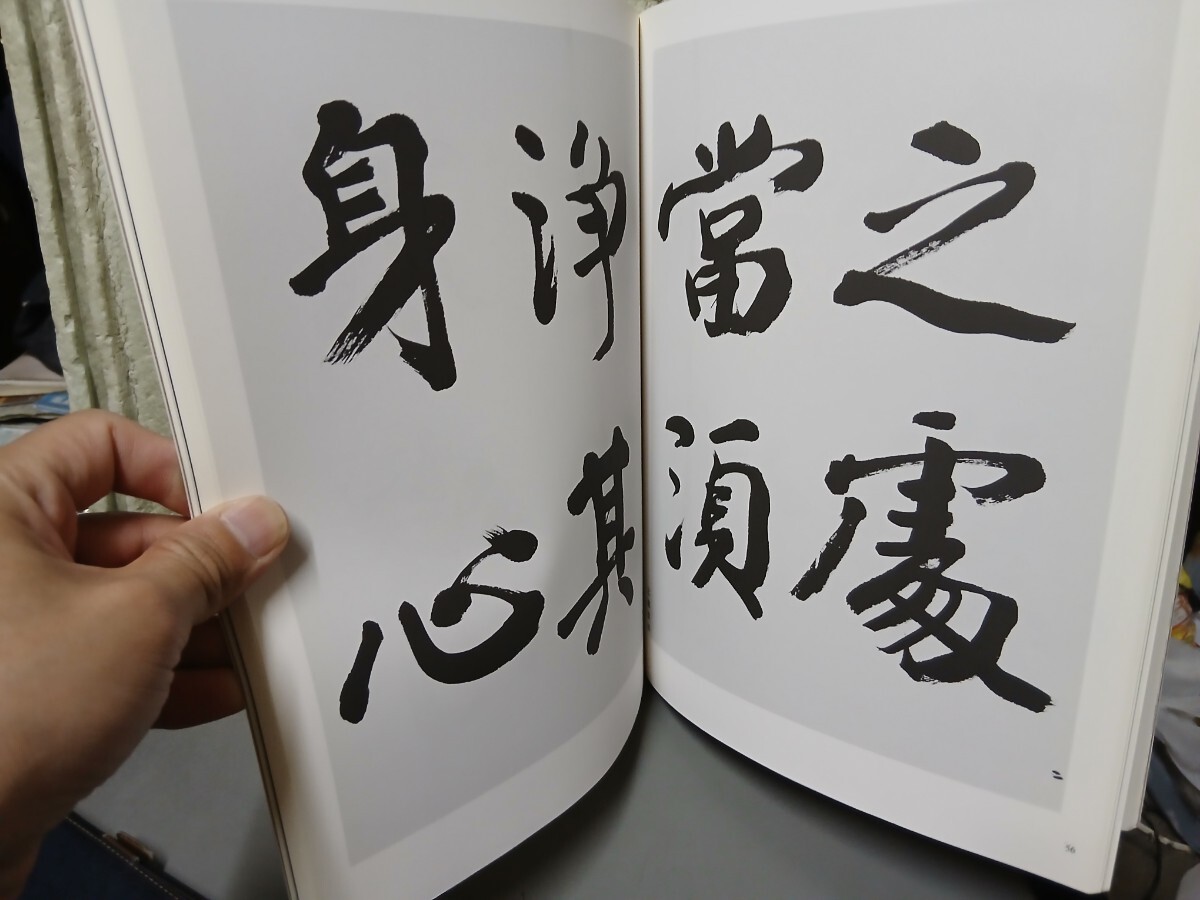 之處
當須
浄其
身心
56